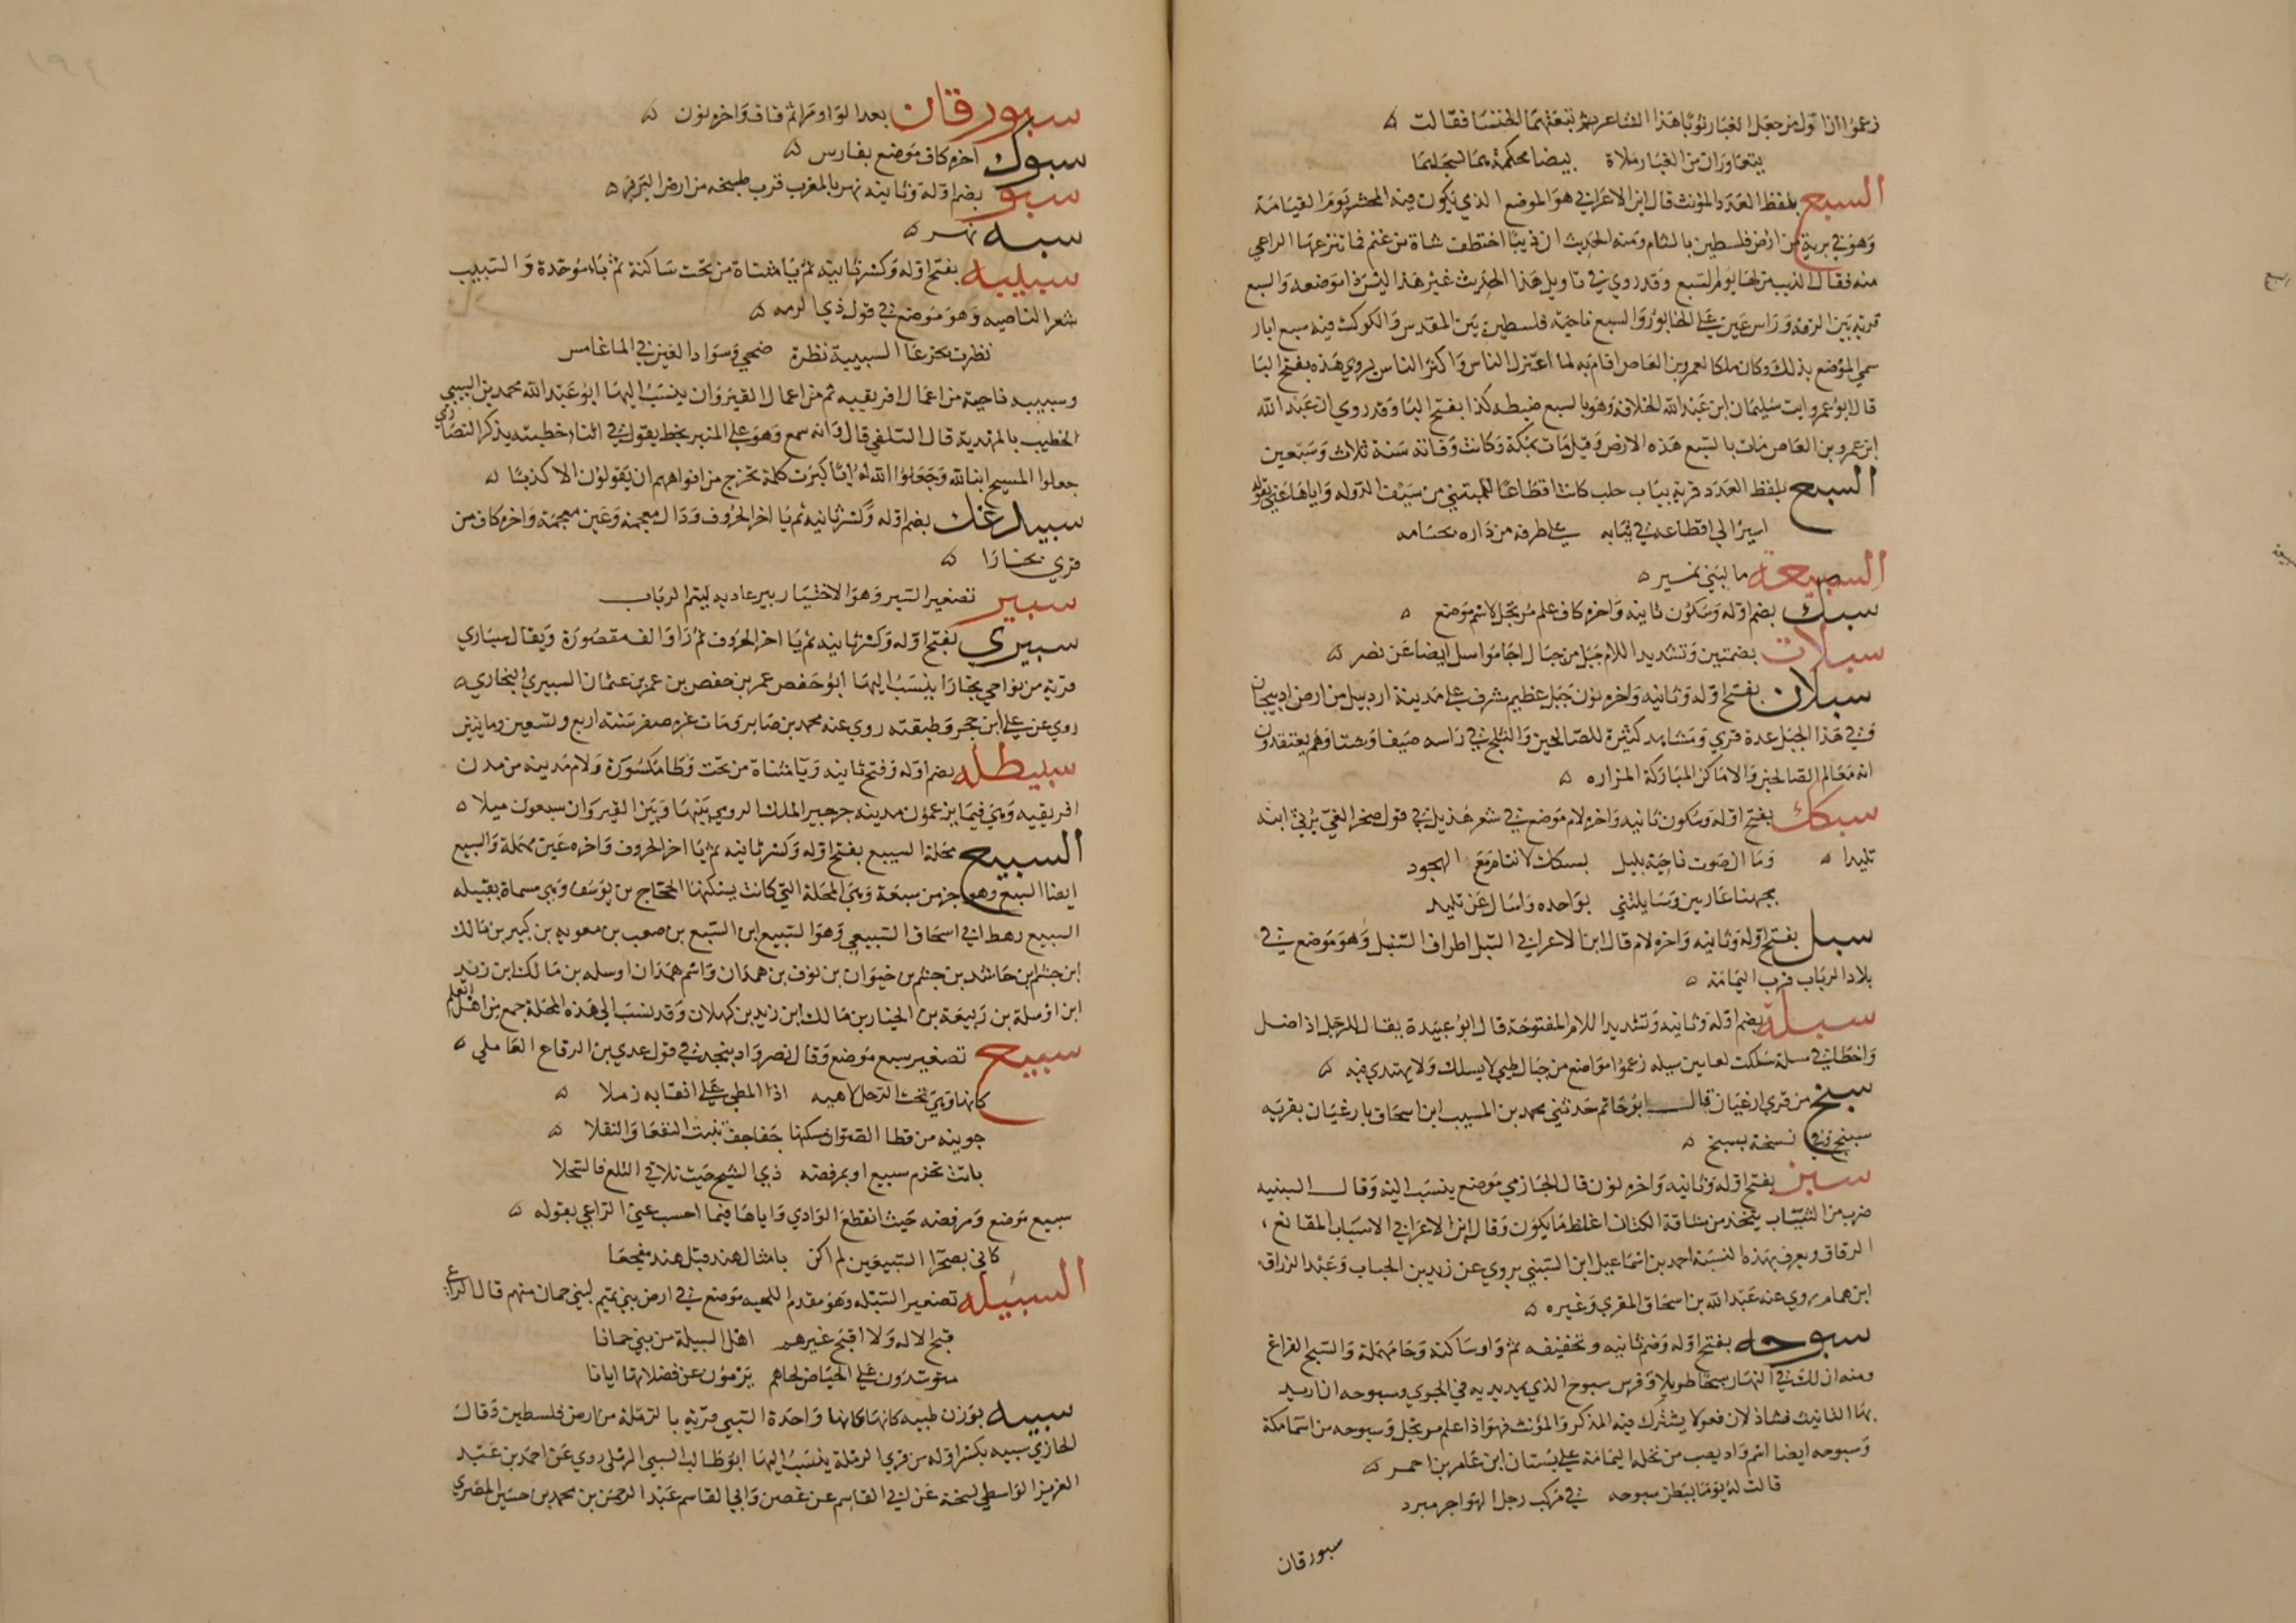 زعموا ان اول من جعل الغبار ثوبا هذا الشاعر ثم تبعتهما الخنسا فقالت
يتعاوران من الغبار ملاة بيضا محكمة هما نسجاهما
السبع بلفظ العدد المؤنث قال ابن الاعرابي هو الموضع الذي يكون فيه المحشر يوم القيامة
وهو في برية من ارض فلسطين بالشام ومنه الحديث ان ذيبا اختطف شاة من غنم فانتزعها الراعي
منه فقال الذيب من لها يوم السبع وقد روي في تاويل هذا الحديث غير هذا ليس ذا موضعه والسبع
قرية بين الرقة وراس عين على الخابور والسبع ناحية فلسطين بين المقدس والكوك فيه سبع ابار
سمي الموضع بذلك وكان ملكا لعمرو بن العاص اقام به لما اعتزل الناس واكثر الناس يروي هذه بفتح البا
قال ابو عمرو ايت سليمان ابن عبد الله الخلافه وهو بالسبع ضبطه كذا بفتح البا وقد روي ان عبد الله
ابن عمرو بن العاص مات بالسبع هذه الارض وقيل مات بمكة وكانت وفاته سنة ثلاث وسبعين
السبع بلفظ العدد قرية بباب حلب كانت اقطاعا للمتنبي من سيف الدوله واياها عني بقوله
اسير الى اقطاعه في ثيابه على طرفه من داره بحسامه
السبيعة ما لبني نمير
سبك بضم اوله وسكون ثانيه واخره كاف علم مرتجل لاسم موضع
سبلات بضمتين وتشديد اللام جبل من جبال اجا مواسل ايضا عن نصر
سبلان بفتح اوله وثانيه واخره نون جبل عظيم مشرف على مدينة اردبيل من ارض ادبيجان
وفي هذا الجبل عدة قري ومشاهد كثيرة للصالحين والثلج في راسه صيفا وشتا وهم يعتقدون
انه معالم الصالحين والاماكن المباركة المزاره
سبكك بفتح اوله وسكون ثانيه واخره لام موضع في شعر هذيل في قول صخر الغي يرثي ابنه
تليدا وما ان صوت نايحة بليل بسبكك لا تنام مع الهجود
بجهنا غاربين وسايلتني بواحده واسال عن تليد
سبل بفتح اوله وثانيه واخره لام قال ابن الاعرابي السبل اطراف السنبل وهو موضع في
بلاد الرباب قرب اليمامة
سبلة بضم اوله وثانيه وتشديد اللام المفتوحة قال ابو عبيدة يقال للرجل اذا ضل
واخطا في مسلة سلكت لعابين سبله زعموا مواضع من جبال طيي لا يسلك ولا يهتدى فيه
سبنج من قري ارغيان قال ابو حاتم حدثني محمد بن المسيب ابن اسحاق بارغيان بقريه
سبنج وفي نسخة بسبخ
سبن بفتح اوله وثانيه واخره نون قال الحازمي موضع ينسب اليه وقال السبنيه
ضرب من الثياب يتخذ من مشاقة الكتان اغلظ ما يكون وقال ابن الاعرابي الاسباب المقانع
الرقاق ويعرف بهذه النسبة احمد بن اسماعيل ابن السبني يروي عن زيد بن الحباب وعبد الرزاق
ابن همام روي عنه عبد الله بن اسحاق المقري وغيره
سبوحه بفتح اوله وضم ثانيه وتخفيفه ثم واو ساكنة وحا مهملة والسبح الفراغ
ومنه ان لك في النهار سبحا طويلا وفرس سبوح الذي يمد يديه في الجري وسبوحه ان اريد
بها التانيث فشاذ لان فعولا يشترك فيه المذكر والمؤنث فهو اذا علم مرتجل وسبوحه من اسما مكة
وسبوحه ايضا اسم واد يصب من نخله اليمامة على بستان ابن عامر بن احمر
قالت له يوما ببطن سبوحه في مركب رجل الهواجر مبرد
سبورقان
سبورقان بعد الواو را ثم قاف واخره نون
سبوك اخره كاف موضع بفارس
سبو بضم اوله وثانيه نهر بالمغرب قرب طنجه من ارض البربر
سبه نهر
سبيبه بفتح اوله وكسر ثانيه ثم يا مثناة من تحت ساكنة ثم باء موحدة والسبيب
شعر الناصيه وهو موضع في قول ذي الرمه
نظرت بجرعا السبيبية نظرة ضحى وسواد العين في الما غامس
وسبيبه ناحية من اعمال افريقيه ثم من اعمال القيروان ينسب اليها ابو عبد الله محمد بن السبيبي
الخطيب بالمهدية قال السلفي قال وانه سمع وهو على المنبر يخطب يقول في اثنا خطبته يذكر النصارى
جعلوا المسيح ابنا لله وجعلوا الله ابا كبرت كلمة تخرج من افواههم ان يقولون الا كذبا
سبيدغك بضم اوله وكسر ثانيه ثم يا اخر الحروف ودال معجمه وغين معجمة واخره كاف من
قري بخارا
سبير تصغير السبر وهو الاختبار بير عاديه لتيم الرباب
سبيري بفتح اوله وكسر ثانيه ثم يا اخر الحروف ثم را والف مقصورة ويقال سباري
قرية من نواحي بخارا ينسب اليها ابو حفص عمر بن حفص بن عمر بن عثمان السبيري البخاري
روي عن علي ابن حجر وطبقته روي عنه محمد بن صابر ومات غره صفر سنة اربع وتسعين وماتين
سبيطله بضم اوله وفتح ثانيه ويا مثناة من تحت وطا مكسورة ولام مدينه من مدن
افريقيه وهي فيما يزعمون مدينه جرجير الملك الرومي بينها وبين القيروان سبعون ميلا
السبيع محلة السبيع بفتح اوله وكسر ثانيه ثم يا اخر الحروف واخره عين مهملة والسبيع
ايضا السبع وهو جز من سبعة وهي المحلة التي كانت يسكنها الحجاج بن يوسف وهي مسماة بقبيله
السبيع رهط ابي اسحاق السبيعي وهو السبيع ابن السبع بن صعب بن معويه بن كبير بن مالك
ابن جشم ابن حاشد بن جشم بن خيوان بن نوف بن همدان واسم همدان اوسله بن مالك ابن زيد
ابن اوسلة بن ربيعة بن الخيار بن مالك ابن زيد بن كهلان وقد نسب الى هذه المحلة جمع من اهل العلم
سبيع تصغير سبع موضع وقال نصر واد بنجد في قول عدي بن الرقاع العاملي
كانها وهي تحت الرحل لاهيه اذا المطي على انقابه زملا
جوينه من قطا الصوان مسكنها جفاجف تنبت النقعا والنفلا
باتت تحزم سبيع او بمرفضه ذي الشيح حيث تلاقى التلع فانسجلا
سبيع موضع ومرفضه حيث انقطع الوادي واياها فيما احسب عنى الراعي بقوله
كاني بصحرا السبيعين لم اكن بامثال هند قبل هند مفجعا
السبيله تصغير السبله وهو مقدم اللحيه موضع في ارض بني تميم لبني حمان منهم قال الراعي
قبح الاله ولا اقبح غيرهم اهل السبيلة من بني حمانا
متوسدون على الحياض لحاهم يرمون عن فضلاتها ايانا
سبيه بوزن طبيه كانها كانها واحدة السبي قرية بالرملة من ارض فلسطين وقال
الحازمي سبيه بكسر اوله من قري الرملة ينسب اليها ابو طالب السبي الرملي روي عن احمد بن عبد
العزيز الواسطي نسخة عن ابي القاسم عن غصن وابي القاسم عبد الرحمن بن محمد بن حسين المصري